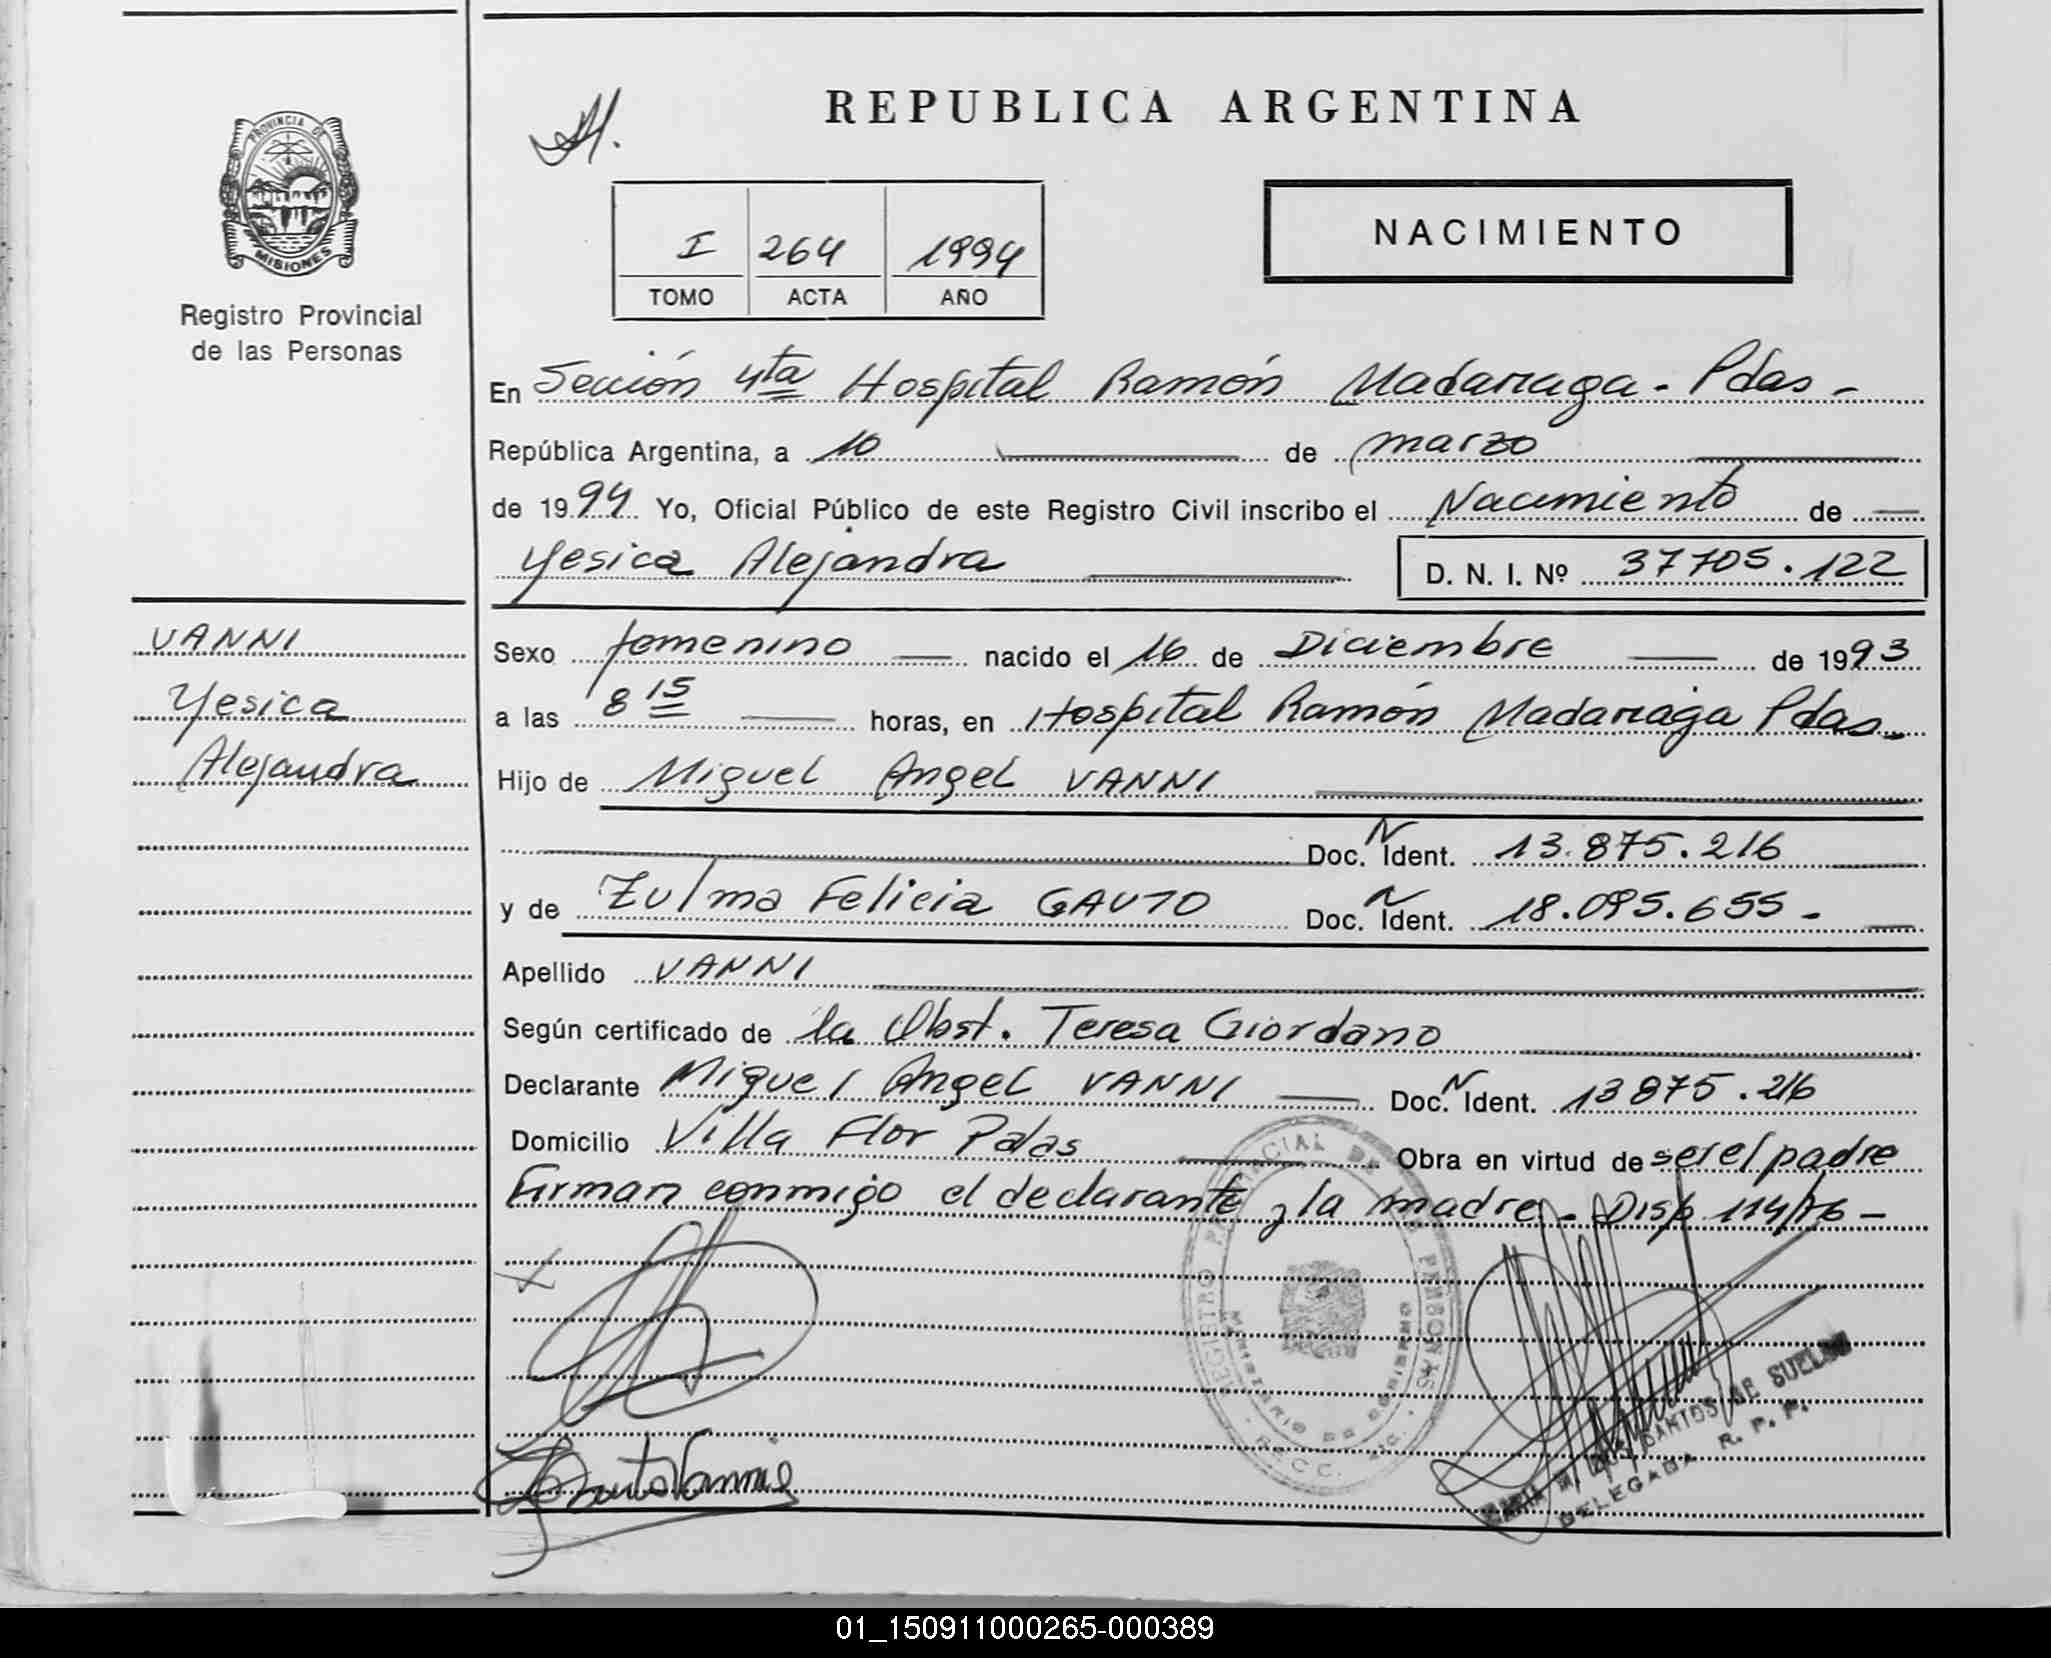 REPUBLICA ARGENTINA
PROVINCIA DE
MISIONES
Registro Provincial
de las Personas
I 264 1994
TOMO ACTA AÑO
NACIMIENTO
En Sección 4ta Hospital Ramón Madariaga - Pdas -
República Argentina, a 10 de marzo
de 1994 Yo, Oficial Público de este Registro Civil inscribo el Nacimiento de
Yesica Alejandra D. N. I. Nº 37705.122
VANNI
Yesica
Alejandra
Sexo femenino nacido el 16 de Diciembre de 1993
a las 8 15 horas, en Hospital Ramón Madariaga Pdas -
Hijo de Miguel Angel VANNI
Doc. N Ident. 13.875.216
y de Zulma Felicia GAUTO Doc. N Ident. 18.095.655 -
Apellido VANNI
Según certificado de la Obst. Teresa Giordano
Declarante Miguel Angel VANNI Doc. N Ident. 13875.216
Domicilio Villa Flor Pdas Obra en virtud de ser el padre
Firman conmigo el declarante y la madre - Disp 114/76 -
REGISTRO PROVINCIAL DE LAS PERSONAS
MINISTERIO DE GOBIERNO
SANTOS DE
DELEGADA R. P. P.
01_150911000265-000389